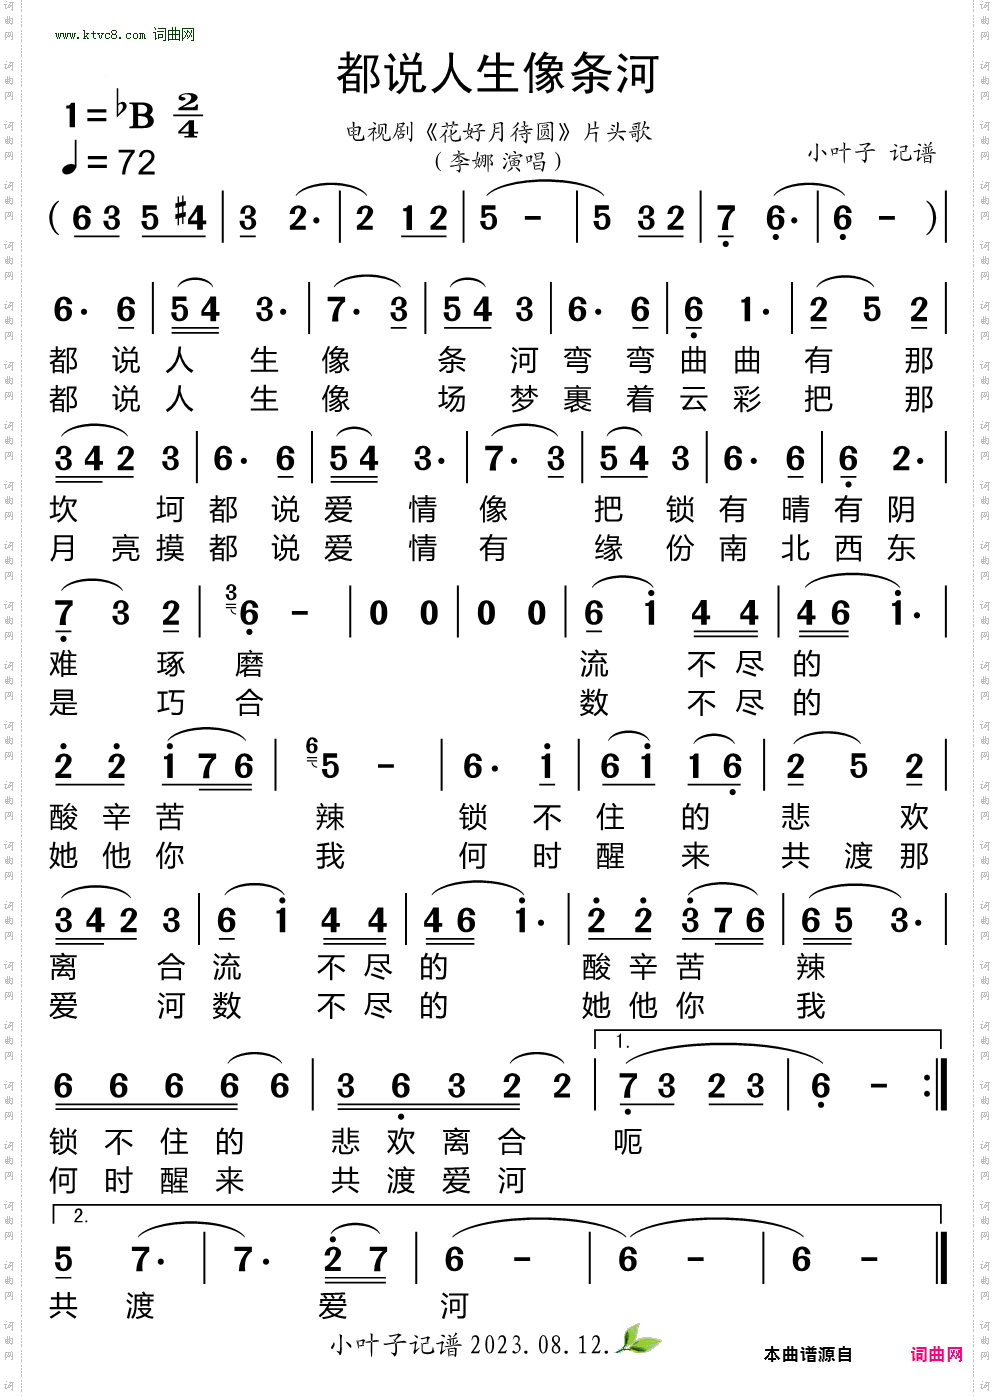 www.ktvc8.com 词曲网
都说人生像条河
1=♭B 2/4
♩=72
电视剧《花好月待圆》片头歌
(李娜 演唱)
小叶子 记谱
( 6 3 5 #4 | 3 2· | 2 1 2 | 5 - | 5 3 2 | 7 6· | 6 - ) |
6· 6 | 5 4 3· | 7· 3 | 5 4 3 | 6· 6 | 6 1· | 2 5 2 |
都 说 人 生 像 条 河 弯 弯 曲 曲 有 那
都 说 人 生 像 场 梦 裹 着 云 彩 把 那
3 4 2 3 | 6· 6 | 5 4 3· | 7· 3 | 5 4 3 | 6· 6 | 6 2· |
坎 坷 都 说 爱 情 像 把 锁 有 晴 有 阴
月 亮 摸 都 说 爱 情 有 缘 份 南 北 西 东
7 3 2 | 3 6 - | 0 0 | 0 0 | 6 1 4 4 | 4 6 1· |
难 琢 磨 流 不 尽 的
是 巧 合 数 不 尽 的
2 2 1 7 6 | 6 5 - | 6· 1 | 6 1 1 6 | 2 5 2 |
酸 辛 苦 辣 锁 不 住 的 悲 欢
她 他 你 我 何 时 醒 来 共 渡 那
3 4 2 3 | 6 1 4 4 | 4 6 1· | 2 2 3 7 6 | 6 5 3· |
离 合 流 不 尽 的 酸 辛 苦 辣
爱 河 数 不 尽 的 她 他 你 我
1.
6 6 6 6 6 | 3 6 3 2 2 | 7 3 2 3 | 6 - :|
锁 不 住 的 悲 欢 离 合 呃
何 时 醒 来 共 渡 爱 河
2.
5 7· | 7· 2 7 | 6 - | 6 - | 6 - |
共 渡 爱 河
小叶子记谱 2023.08.12.
本曲谱源自 词曲网